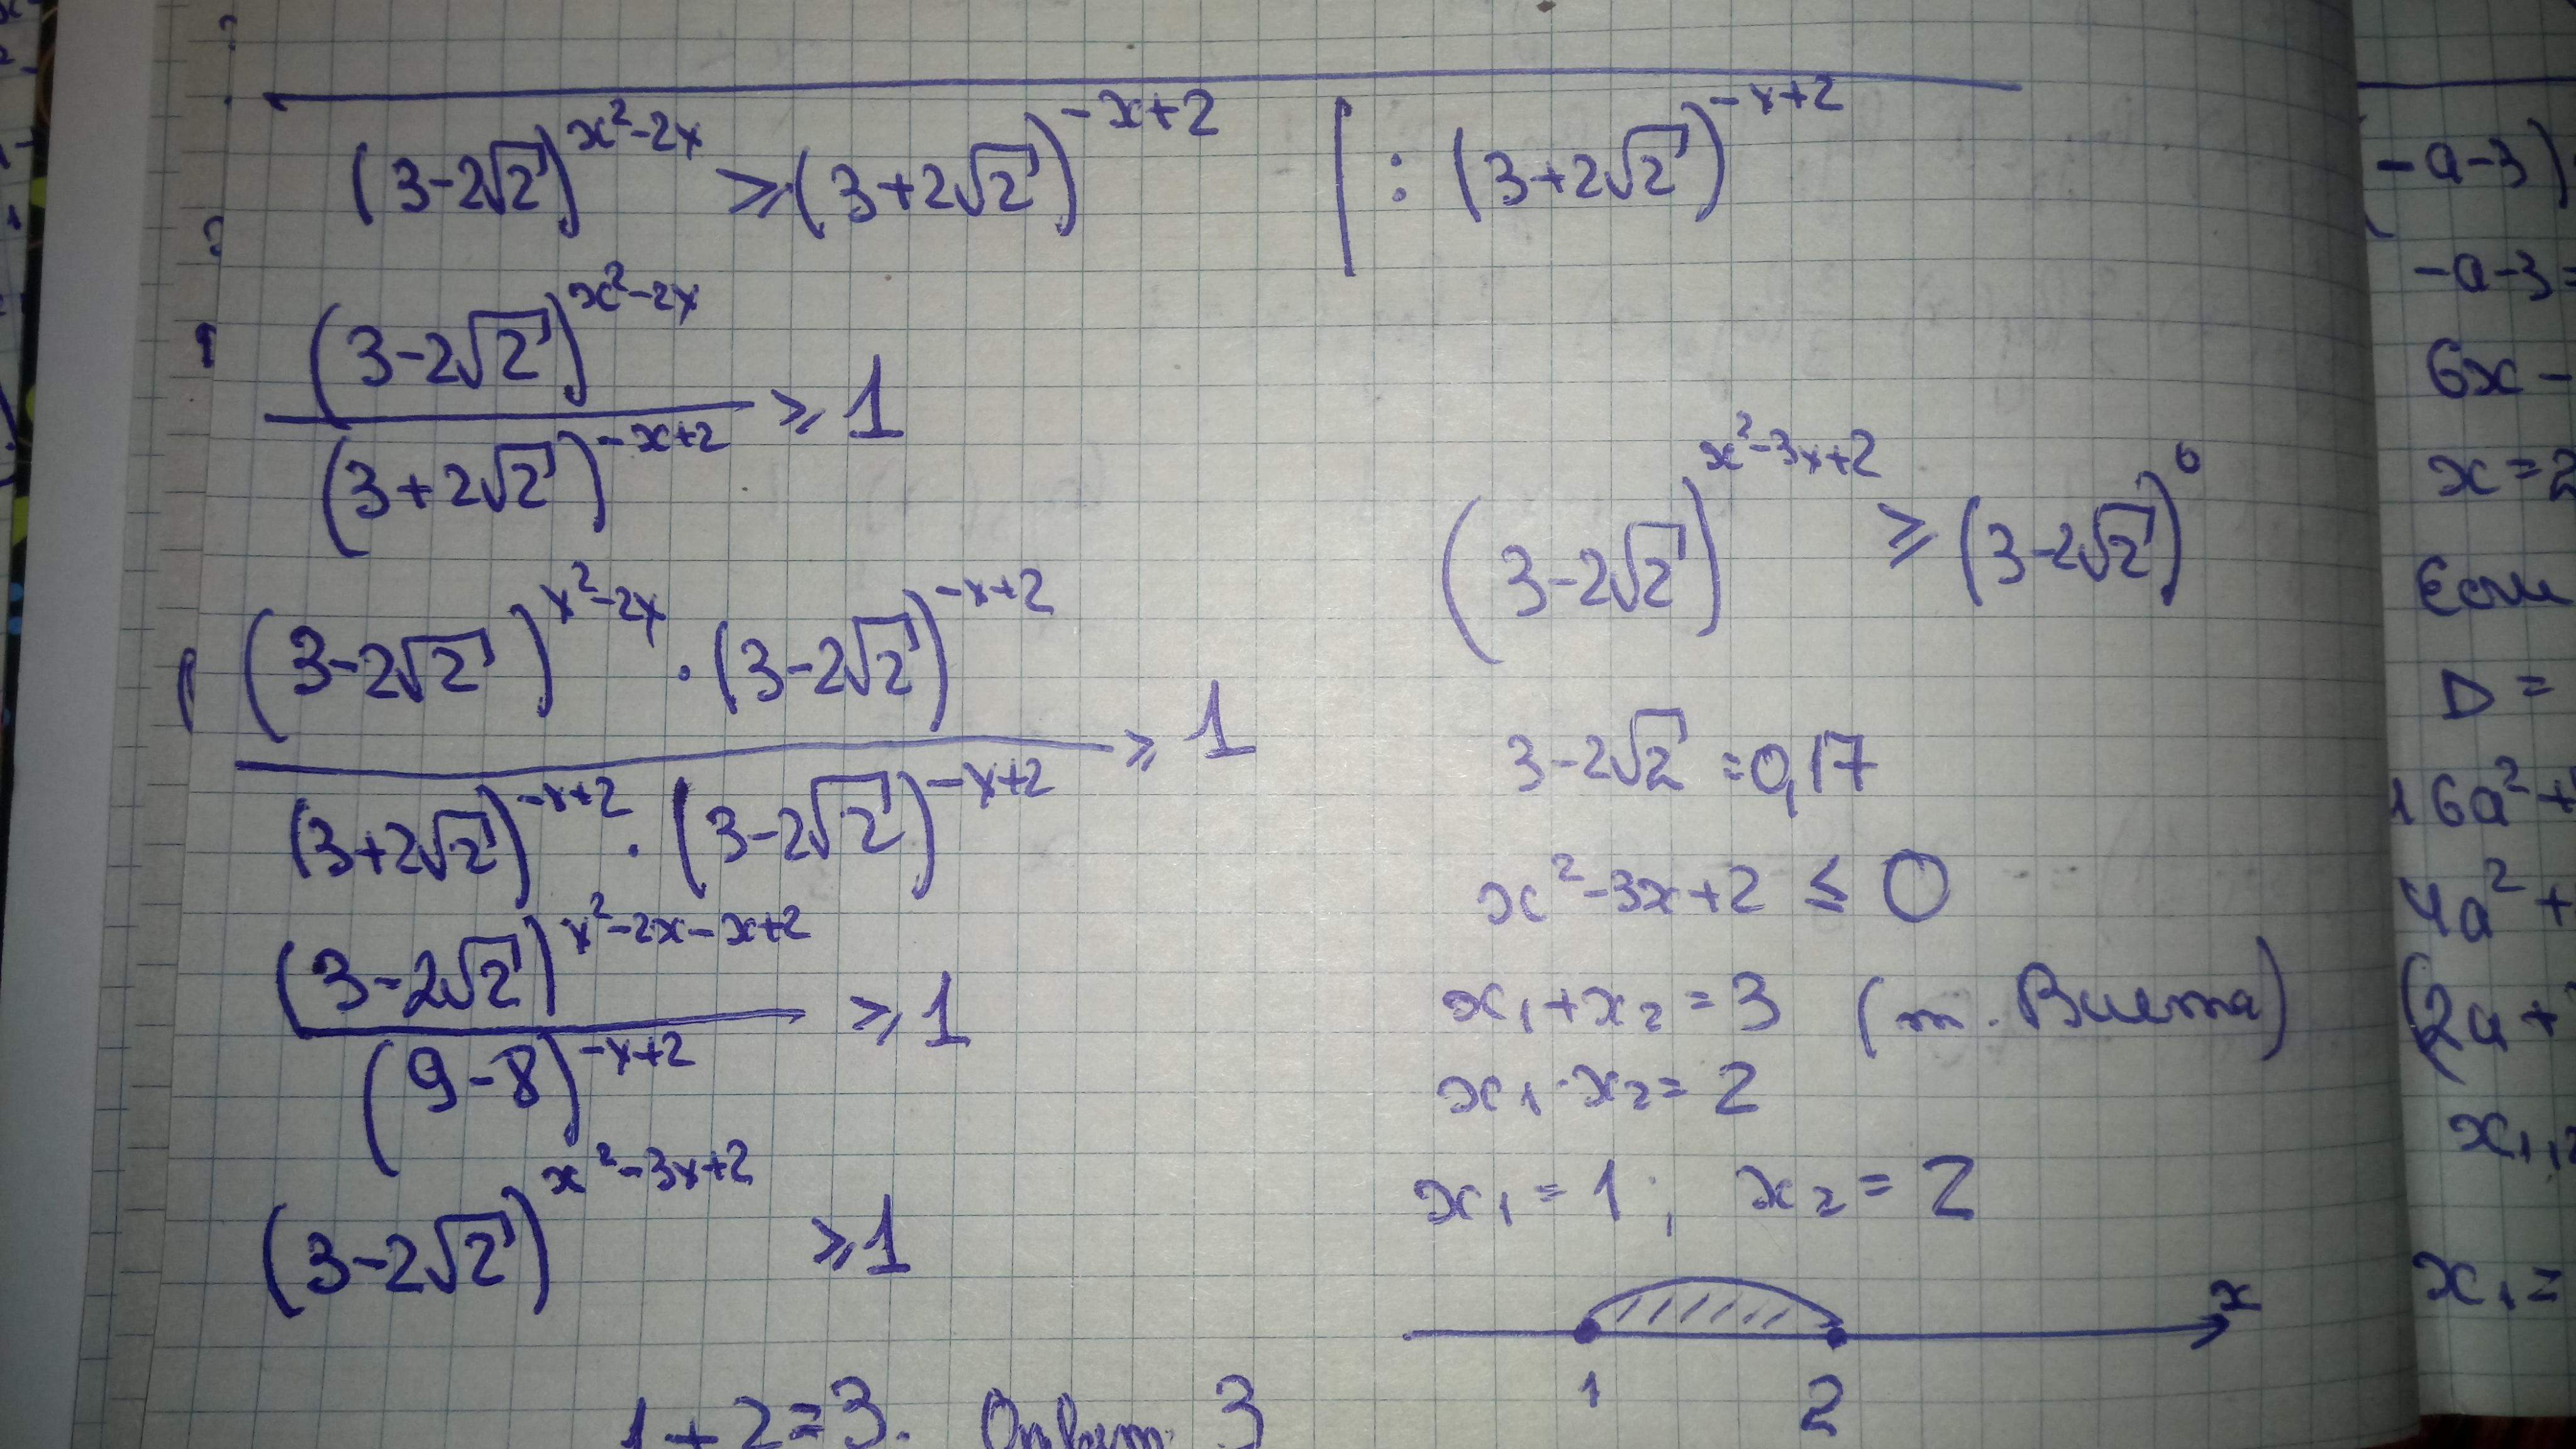 (3-2√2)^(x²-2x) ⩾ (3+2√2)^(-x+2) | : (3+2√2)^(-x+2)
(3-2√2)^(x²-2x) / (3+2√2)^(-x+2) ⩾ 1
(3-2√2)^(x²-2x) · (3-2√2)^(-x+2) / (3+2√2)^(-x+2) · (3-2√2)^(-x+2) ⩾ 1
(3-2√2)^(x²-2x-x+2) / (9-8)^(-x+2) ⩾ 1
(3-2√2)^(x²-3x+2) ⩾ 1
(3-2√2)^(x²-3x+2) ⩾ (3-2√2)^0
3-2√2 = 0,17
x²-3x+2 ≤ 0
x₁+x₂ = 3 (т. Виета)
x₁·x₂ = 2
x₁ = 1; x₂ = 2
x
1 2
1+2=3. Ответ: 3
(-a-3)
-a-3=
6x-
x=2
Если
D =
16a²+
4a²+
(2a+
x₁,₂
x₁=